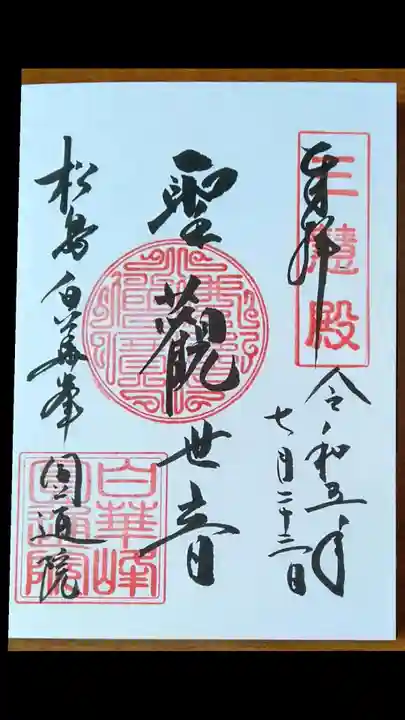 奉拝
三慧殿
令和五年
七月二十三日
聖觀世音
松島白華峰圓通院
白華峰
圓通院